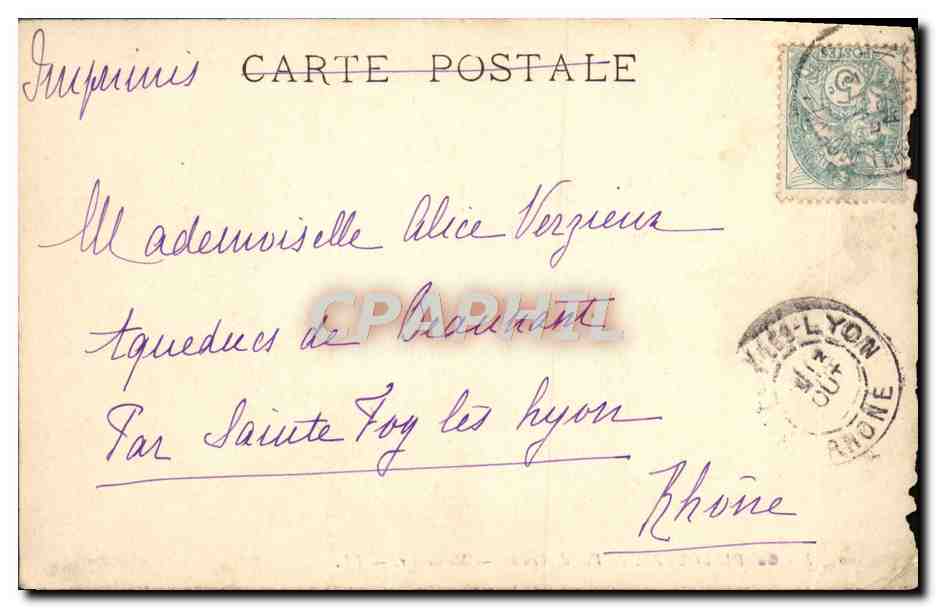 Imprimés
CARTE POSTALE
POSTES
5
Mademoiselle Alice Verzieux
Aqueducs de Beaunant
CPAPHIL
LYON
OUT
RHONE
Par Sainte Foy lès Lyon
Rhône